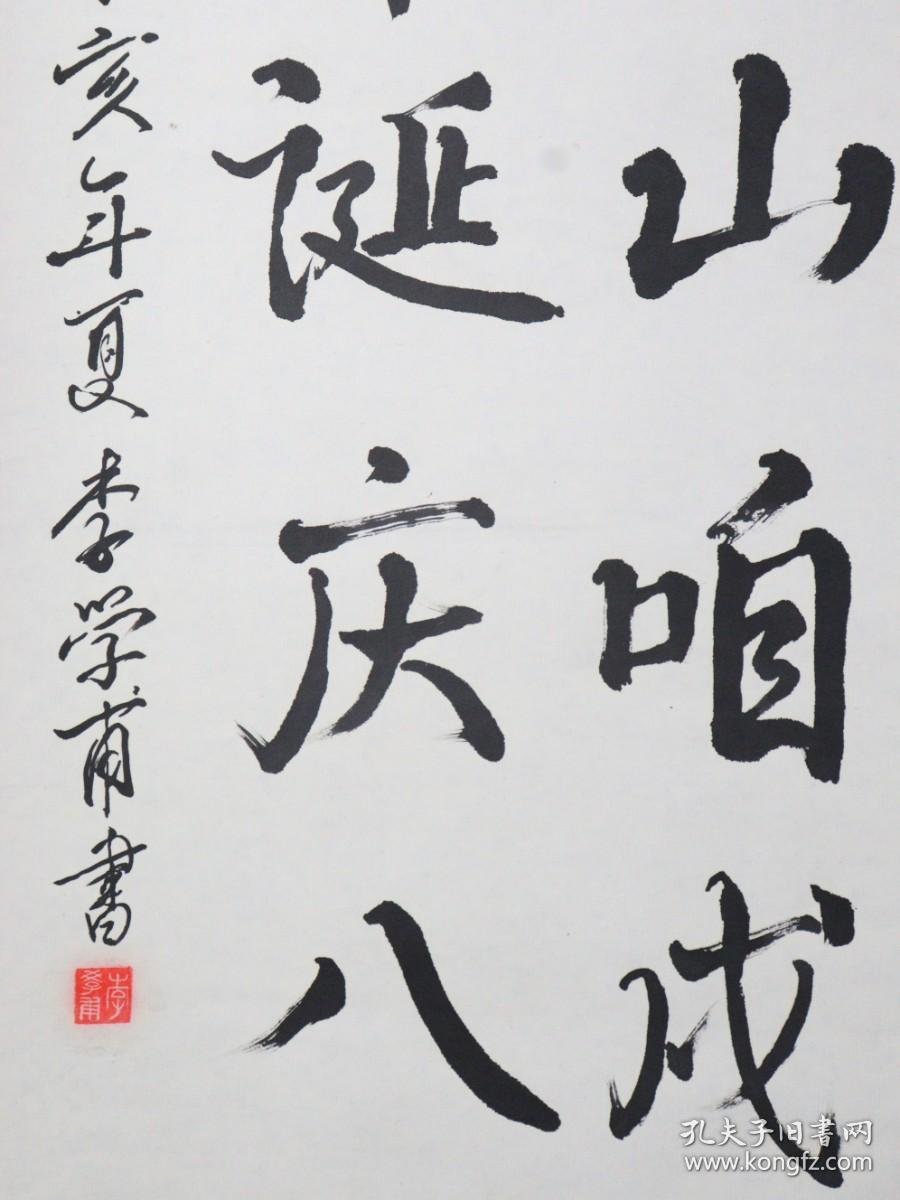 山咱成
诞庆八
亥年夏 李学甫书
李学甫
孔夫子旧书网
www.kongfz.com